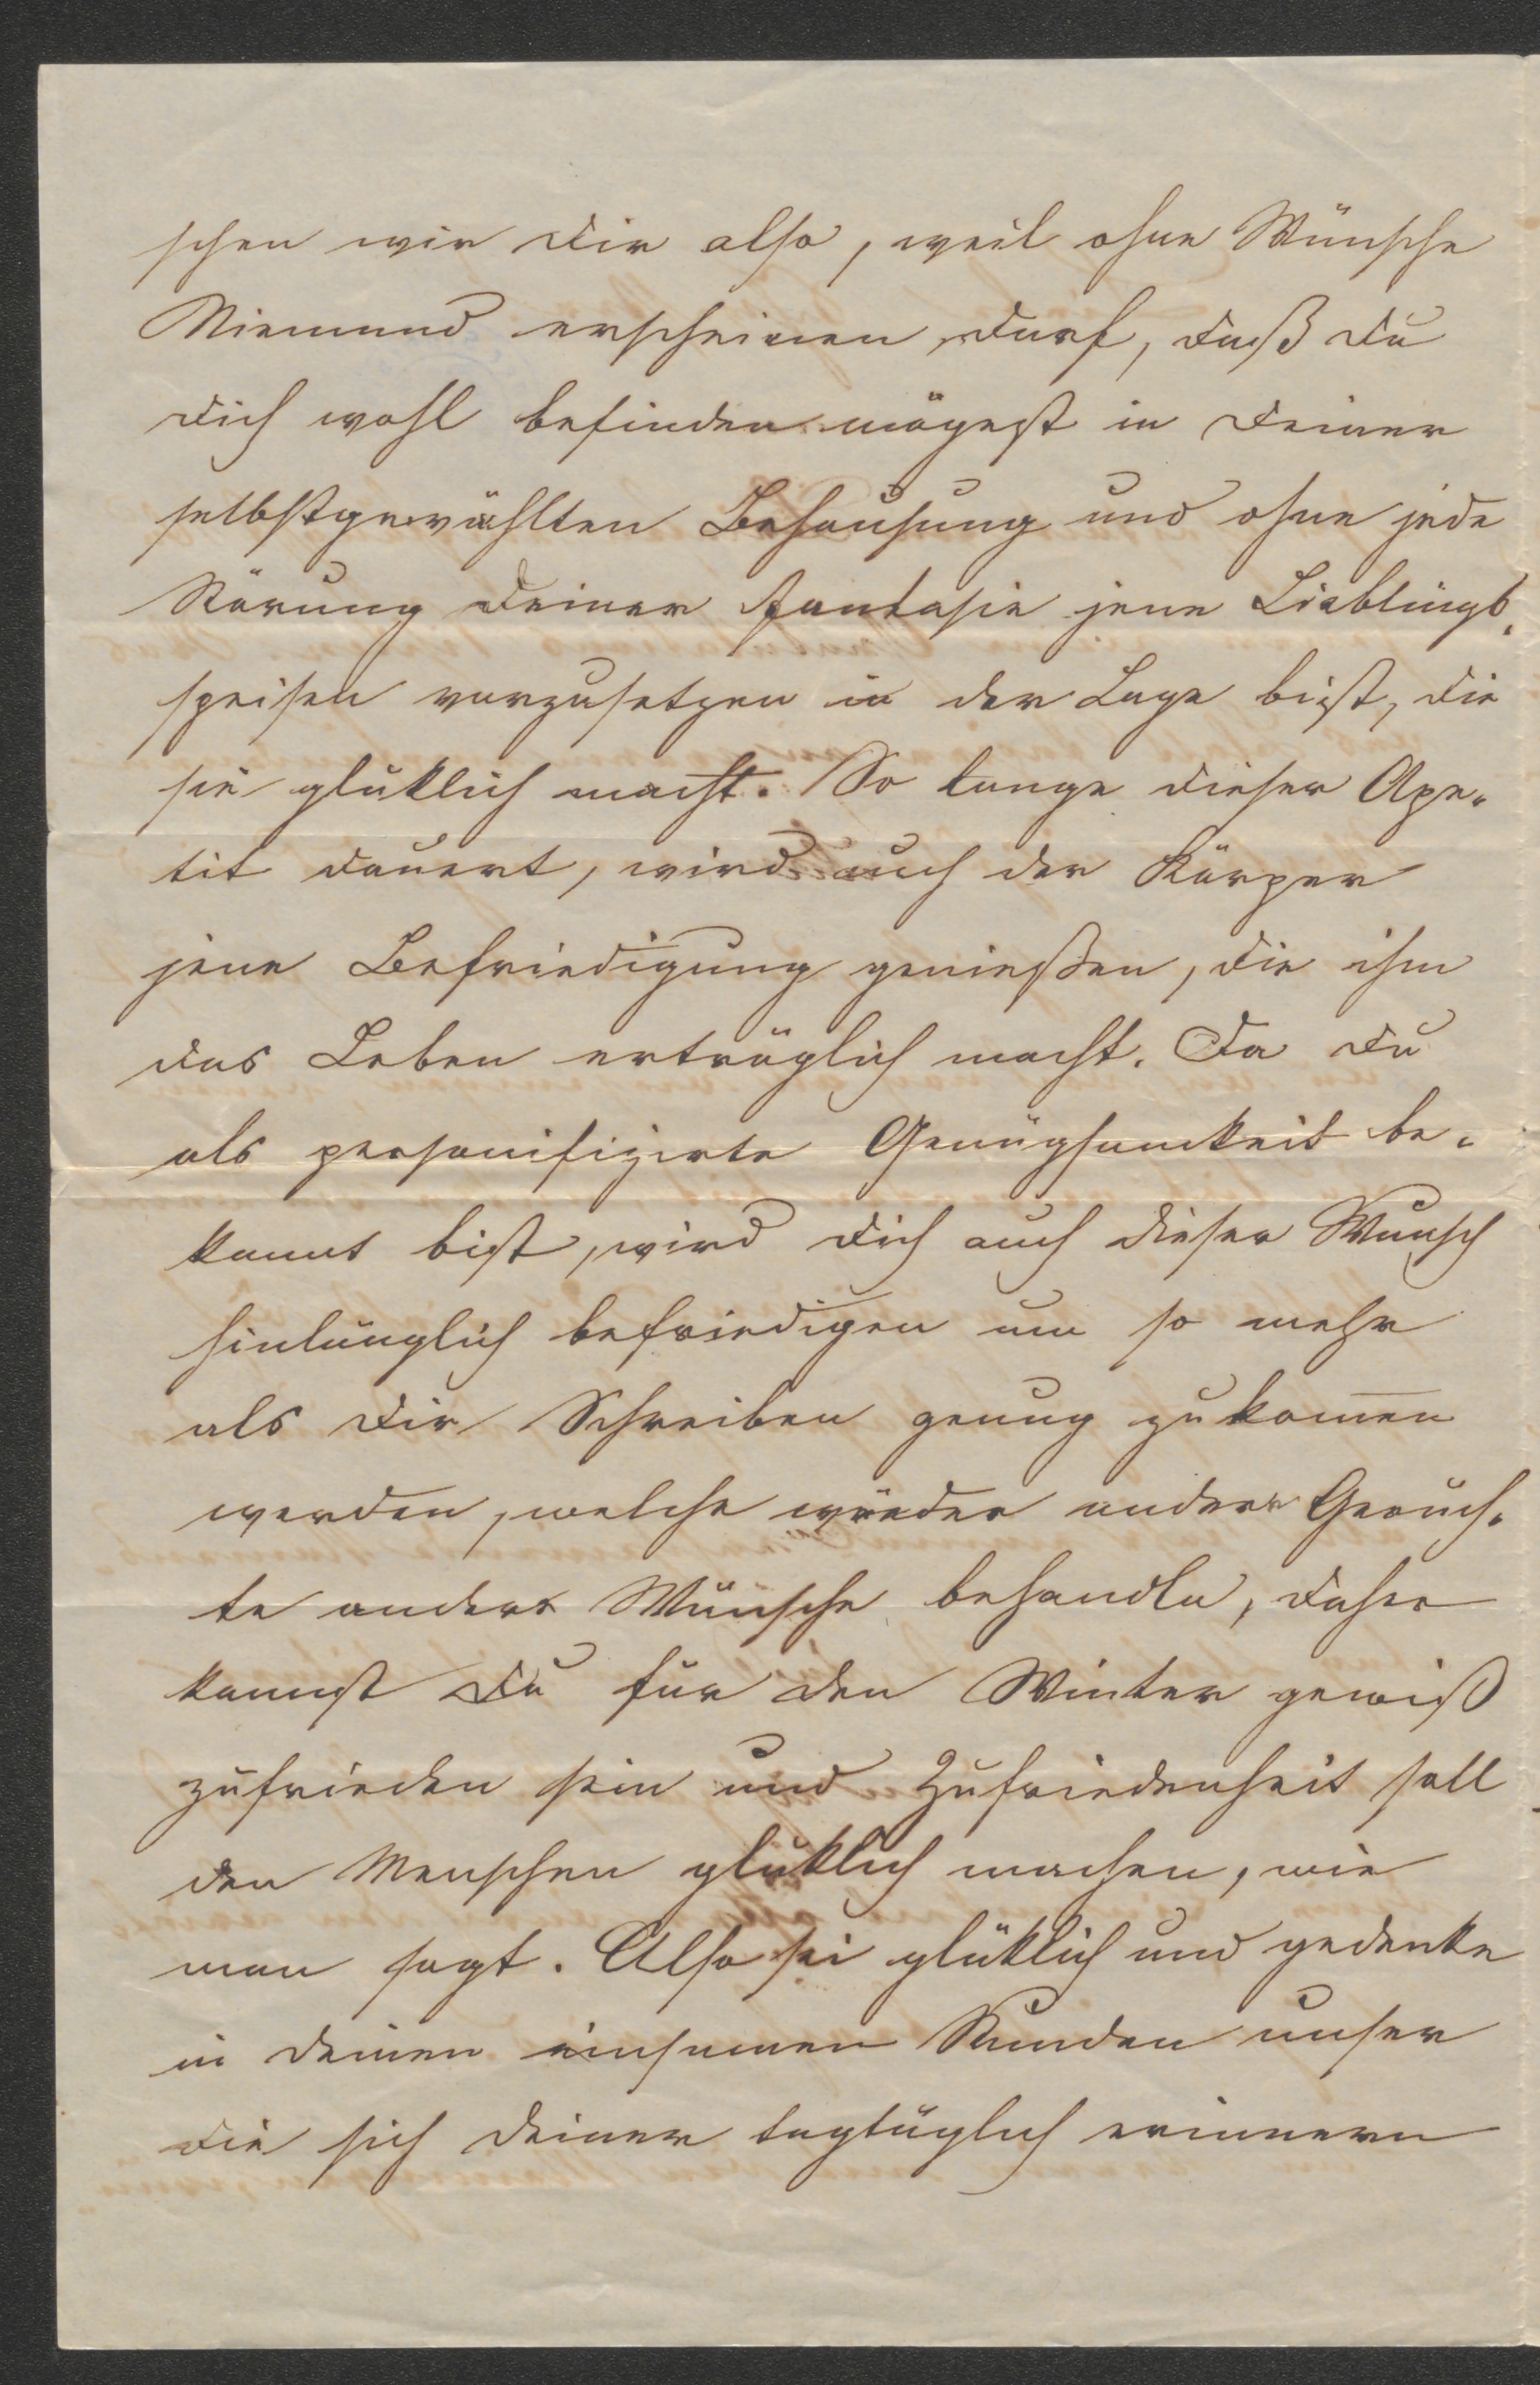 schen wir Dir also, weil ohne Wünsche
Niemand erscheinen darf, daß Du
Dich wohl befinden mögest in Deiner
selbstgewählten Behausung und ohne jede
Störung Deiner Fantasie jene Lieblings-
speisen vorzusetzen in der Lage bist, die
sie glüklich macht. So lange dieser Ape-
tit dauert, wird auch der Körper
jene Befriedigung genießen, die ihm
das Leben erträglich macht. Da Du
als personifizirte Genügsamkeit be-
kannt bist, wird Dich auch dieser Wunsch
hinlänglich befriedigen um so mehr
als Dir Schreiben genug zukom̄en
werden, welche wieder andere Gerüch-
te andere Wünsche behandln, daher
kannst Du für den Winter gewiß
zufrieden sein und Zufriedenheit soll
den Menschen glüklich machen, wie
man sagt. Also sei glüklich und gedenke
in deinen einsamen Stunden unser
die sich Deiner tagtäglich erinnern